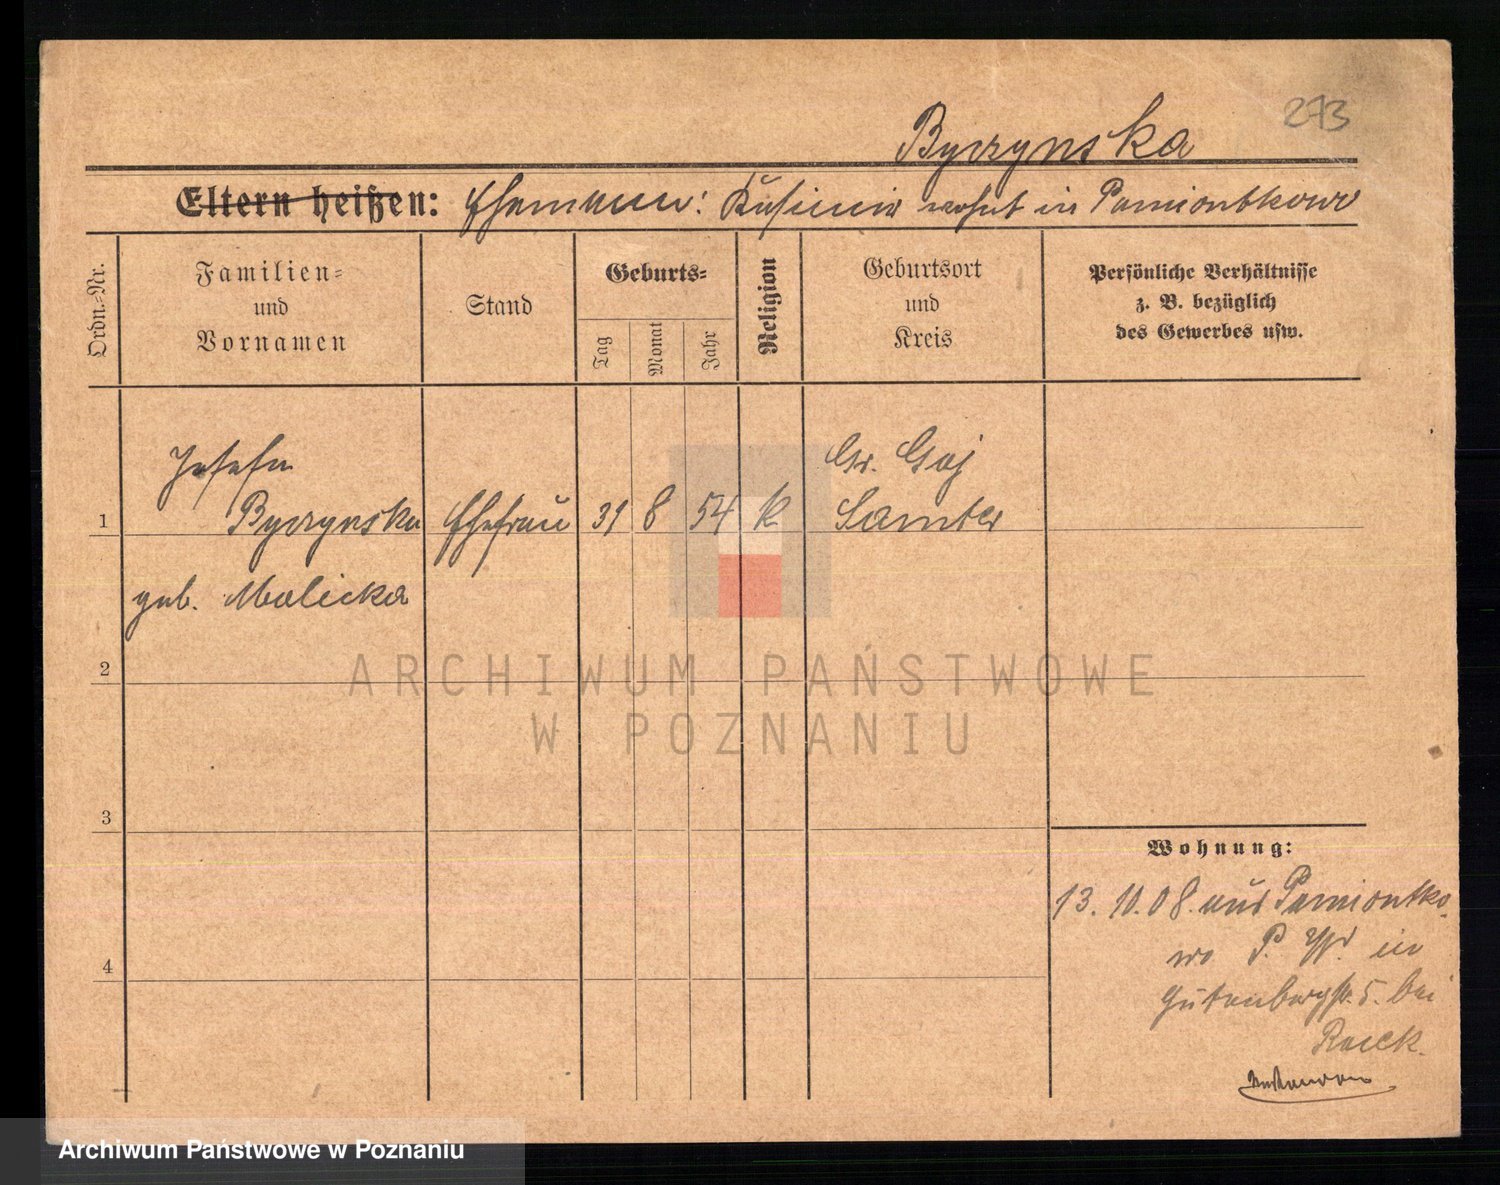 273
Byczynska
Eltern heißen: Ehemann: Kasimir wohnt in Pamiontkowo
Ordn.-Nr.
Familien-
und
Vornamen
Stand
Geburts-
Tag
Monat
Jahr
Religion
Geburtsort
und
Kreis
Persönliche Verhältnisse
z. B. bezüglich
des Gewerbes usw.
Josefa
Gr. Gaj
1 Byczynska Ehefrau 31 8 54 k Samter
geb. Malicka
2
3
4
Wohnung:
13. 10. 08. aus Pamiontko-
wo P. W. in
Gutenbergstr. 5. bei
ARCHIWUM PAŃSTWOWE
W POZNANIU
Archiwum Państwowe w Poznaniu